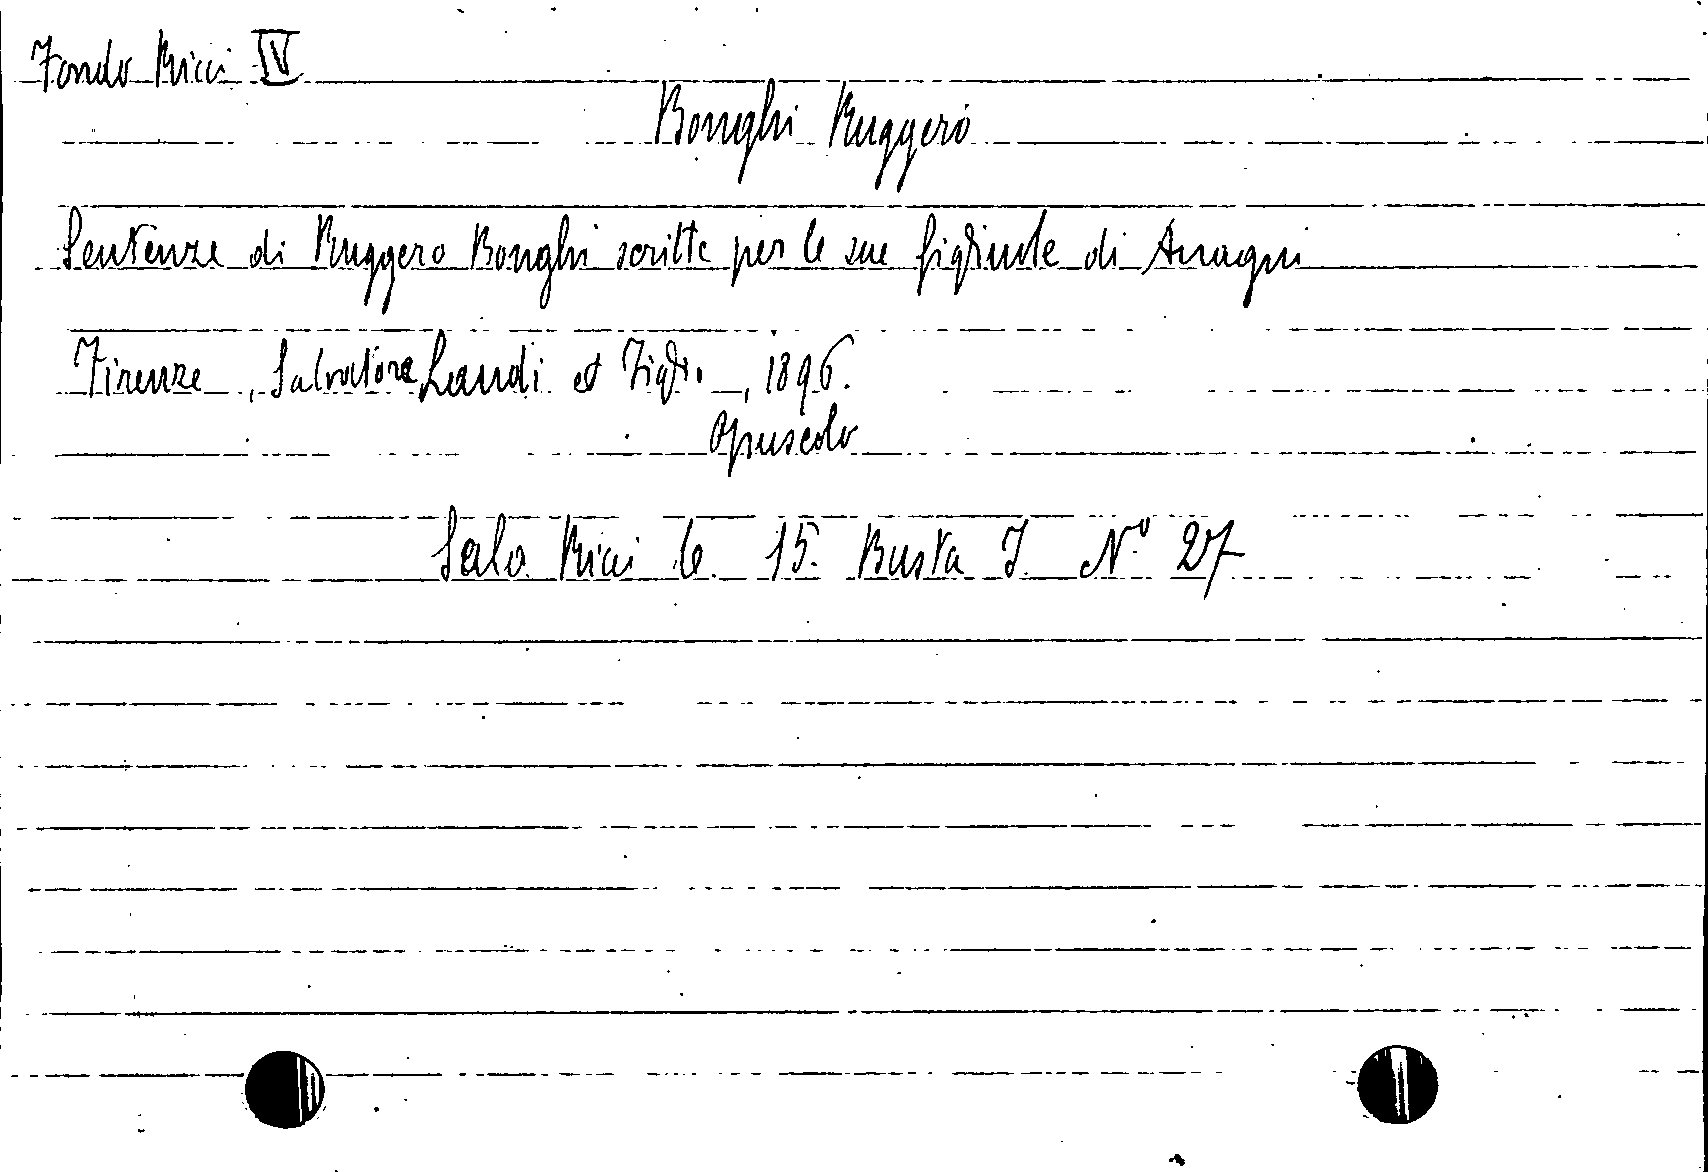 Fondo Ricci IV
Bonghi Ruggero
Sentenze di Ruggero Bonghi scritte per le sue figliuole di Anagni
Firenze, Salvatore Landi et Figlio, 1896.
Opuscolo
Sala Ricci 6. 15. Busta I N.o 27